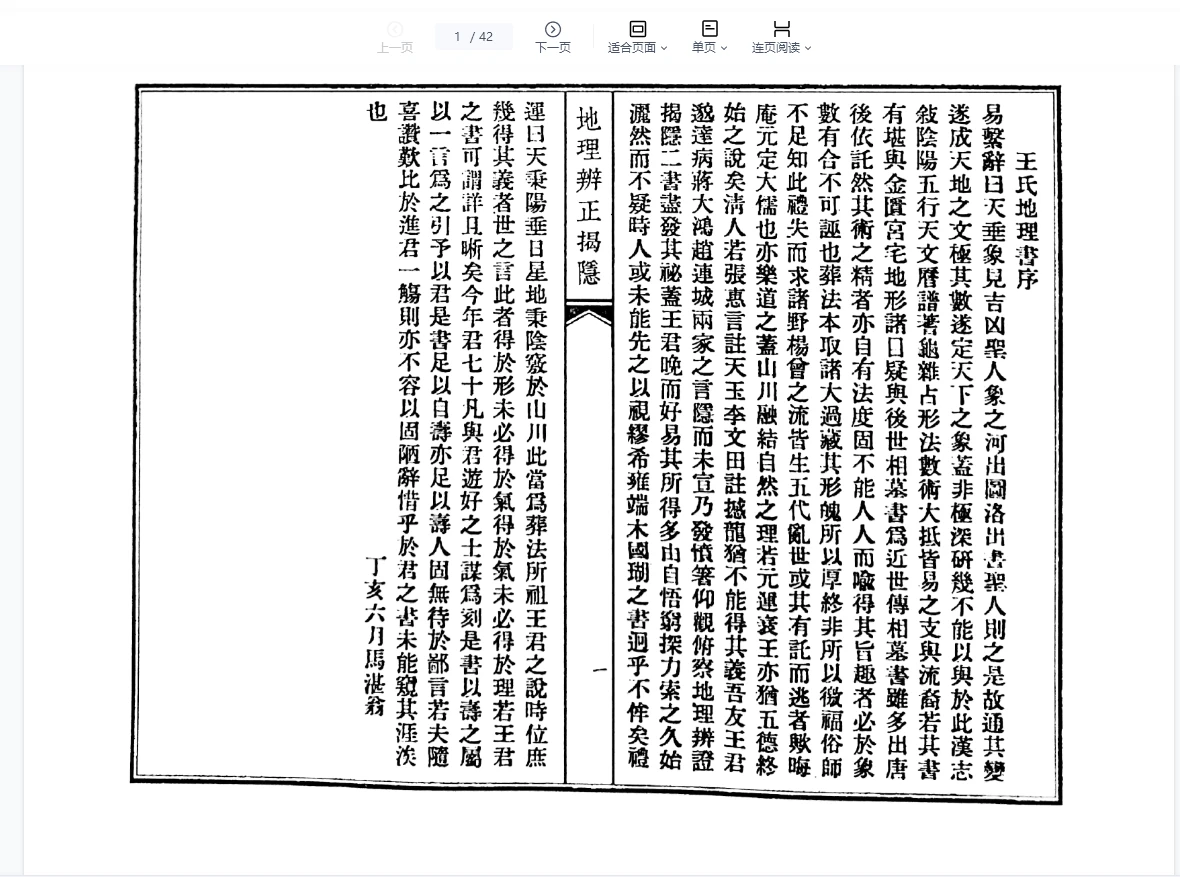 上一页
1 / 42
下一页
适合页面
单页
连页阅读
王氏地理書序
易繫辭曰天垂象見吉凶聖人象之河出圖洛出書聖人則之是故通其變
遂成天地之文極其數遂定天下之象蓋非極深研幾不能以與於此漢志
敍陰陽五行天文曆譜蓍龜雜占形法數術大抵皆易之支與流裔若其書
有堪輿金匱宮宅地形諸目疑與後世相墓書爲近世傳相墓書雖多出唐
後依託然其術之精者亦自有法度固不能人人而喩得其旨趣者必於象
數有合不可誣也葬法本取諸大過藏其形魄所以厚終非所以徼福俗師
不足知此禮失而求諸野楊曾之流皆生五代亂世或其有託而逃者歟晦
庵元定大儒也亦樂道之蓋山川融結自然之理若元運衰王亦猶五德終
始之說矣淸人若張惠言註天玉李文田註撼龍猶不能得其義吾友王君
邈達病蔣大鴻趙連城兩家之言隱而未宣乃發憤箸仰觀俯察地理辨證
揭隱二書盡發其祕蓋王君晚而好易其所得多由自悟窮探力索之久始
灑然而不疑時人或未能先之以視繆希雍端木國瑚之書迥乎不侔矣禮
地理辨正揭隱
一
運曰天秉陽垂日星地秉陰竅於山川此當爲葬法所祖王君之說時位庶
幾得其義者世之言此者得於形未必得於氣得於氣未必得於理若王君
之書可謂詳且晰矣今年君七十凡與君遊好之士謀爲刻是書以壽之屬
以一言爲之引予以君是書足以自壽亦足以壽人固無待於鄙言若夫隨
喜讚歎比於進君一觴則亦不容以固陋辭惜乎於君之書未能窺其涯涘
也
丁亥六月馬湛翁